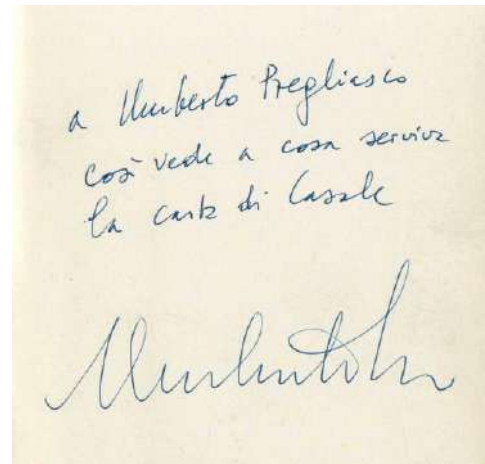 a Umberto Pregliasco
così vede a cosa serviva
la carta di Casale
Umberto Eco